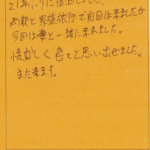 21年ぶりに宿泊しました。
両親と家族旅行で前回は来ましたが
今回は妻と一緒に来れました。
懐かしく色々と思い出せました。
また来ます。